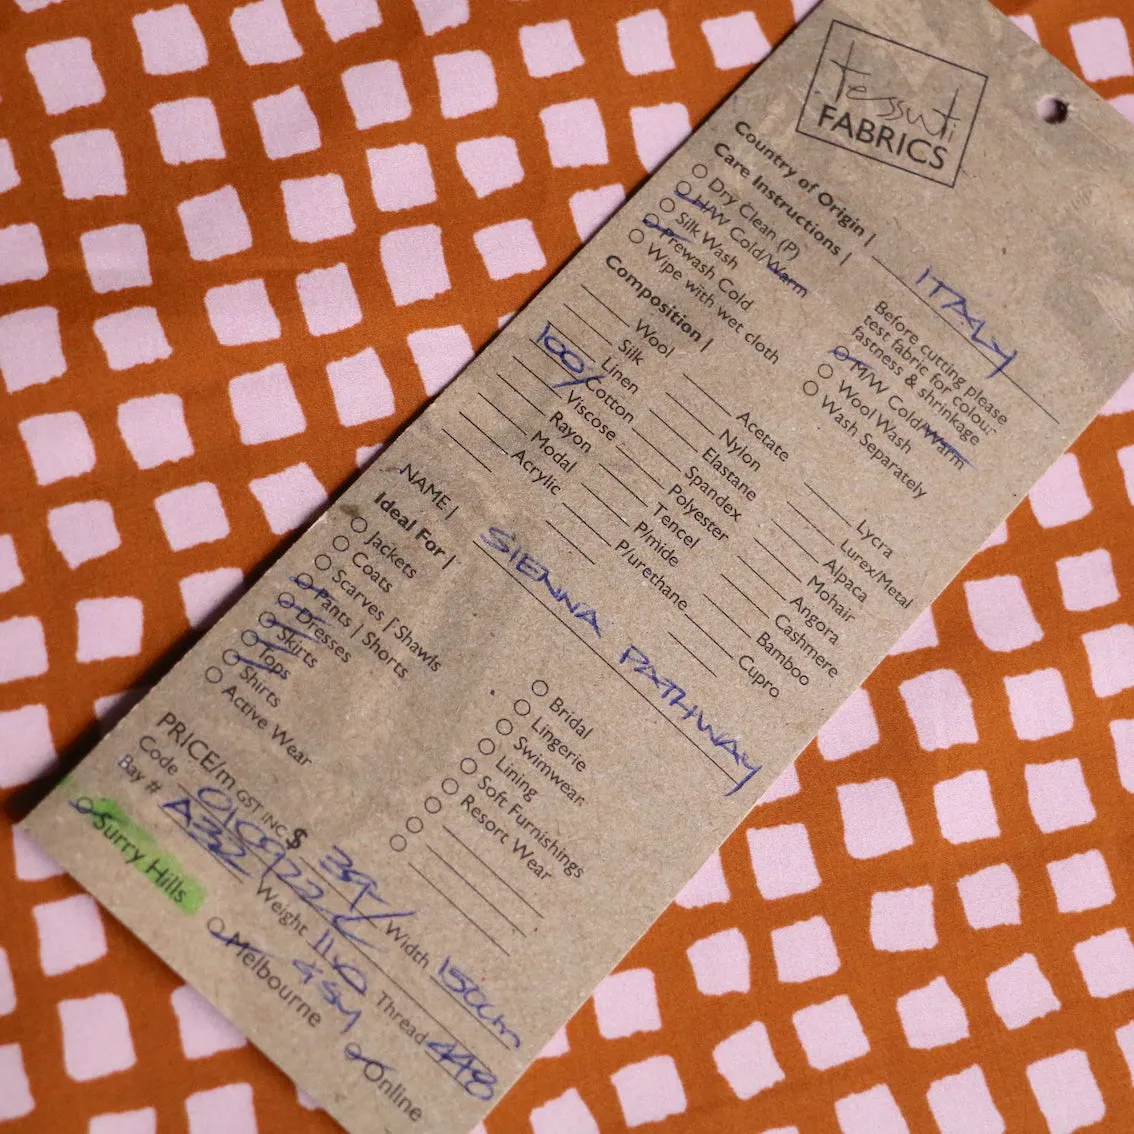 tessuti
FABRICS
Country of Origin | ITALY
Care Instructions |
Dry Clean (P)
H/W Cold/Warm
Silk Wash
Prewash Cold
Wipe with wet cloth
Before cutting please
test fabric for colour
fastness & shrinkage
M/W Cold/Warm
Wool Wash
Wash Separately
Composition |
Wool
Silk
Linen
100/ Cotton
Viscose
Rayon
Modal
Acrylic
Acetate
Nylon
Elastane
Spandex
Polyester
Tencel
P/mide
P/urethane
Lycra
Lurex/Metal
Alpaca
Mohair
Angora
Cashmere
Bamboo
Cupro
NAME | SIENNA PATHWAY
Ideal For |
Jackets
Coats
Scarves | Shawls
Pants | Shorts
Dresses
Skirts
Tops
Shirts
Active Wear
Bridal
Lingerie
Swimwear
Lining
Soft Furnishings
Resort Wear
PRICE/m GST INC $ 39/
Code
Width 150cm
Bay # A332
Weight 110
Thread 448
Surry Hills
Melbourne
Online